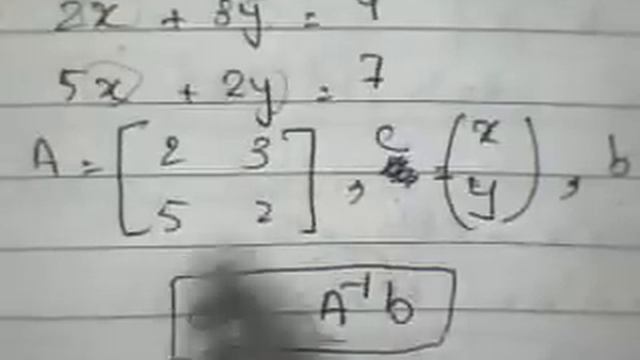 2x + 3y =
5x + 2y = 7
A = [2 3
5 2], c = (x
y), b
A⁻¹b